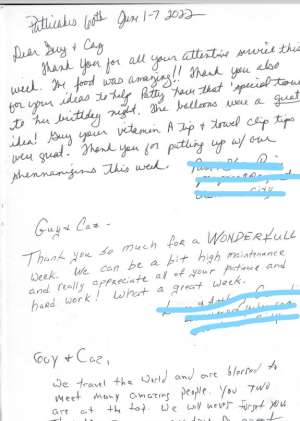 Patticakes 60th June 1-7 2022
Dear Guy + Caz
Thank you for all your attentive service this
week. The food was amazing!! Thank you also
for your ideas to help Patty have that "special touch"
to her birthday night. The balloons were a great
idea! Guy your vitamin A tip + towel clip tips
were great. Thank you for putting up w/ our
shennanigins this week.
city
Guy + Caz -
Thank you so much for a WONDERFULL
week. We can be a bit high maintenance
and really appreciate all of your patience and
hard work! What a great week.
Guy + Caz,
We travel the world and are blessed to
meet many amazing people. You two
are at the top. We will never forget you